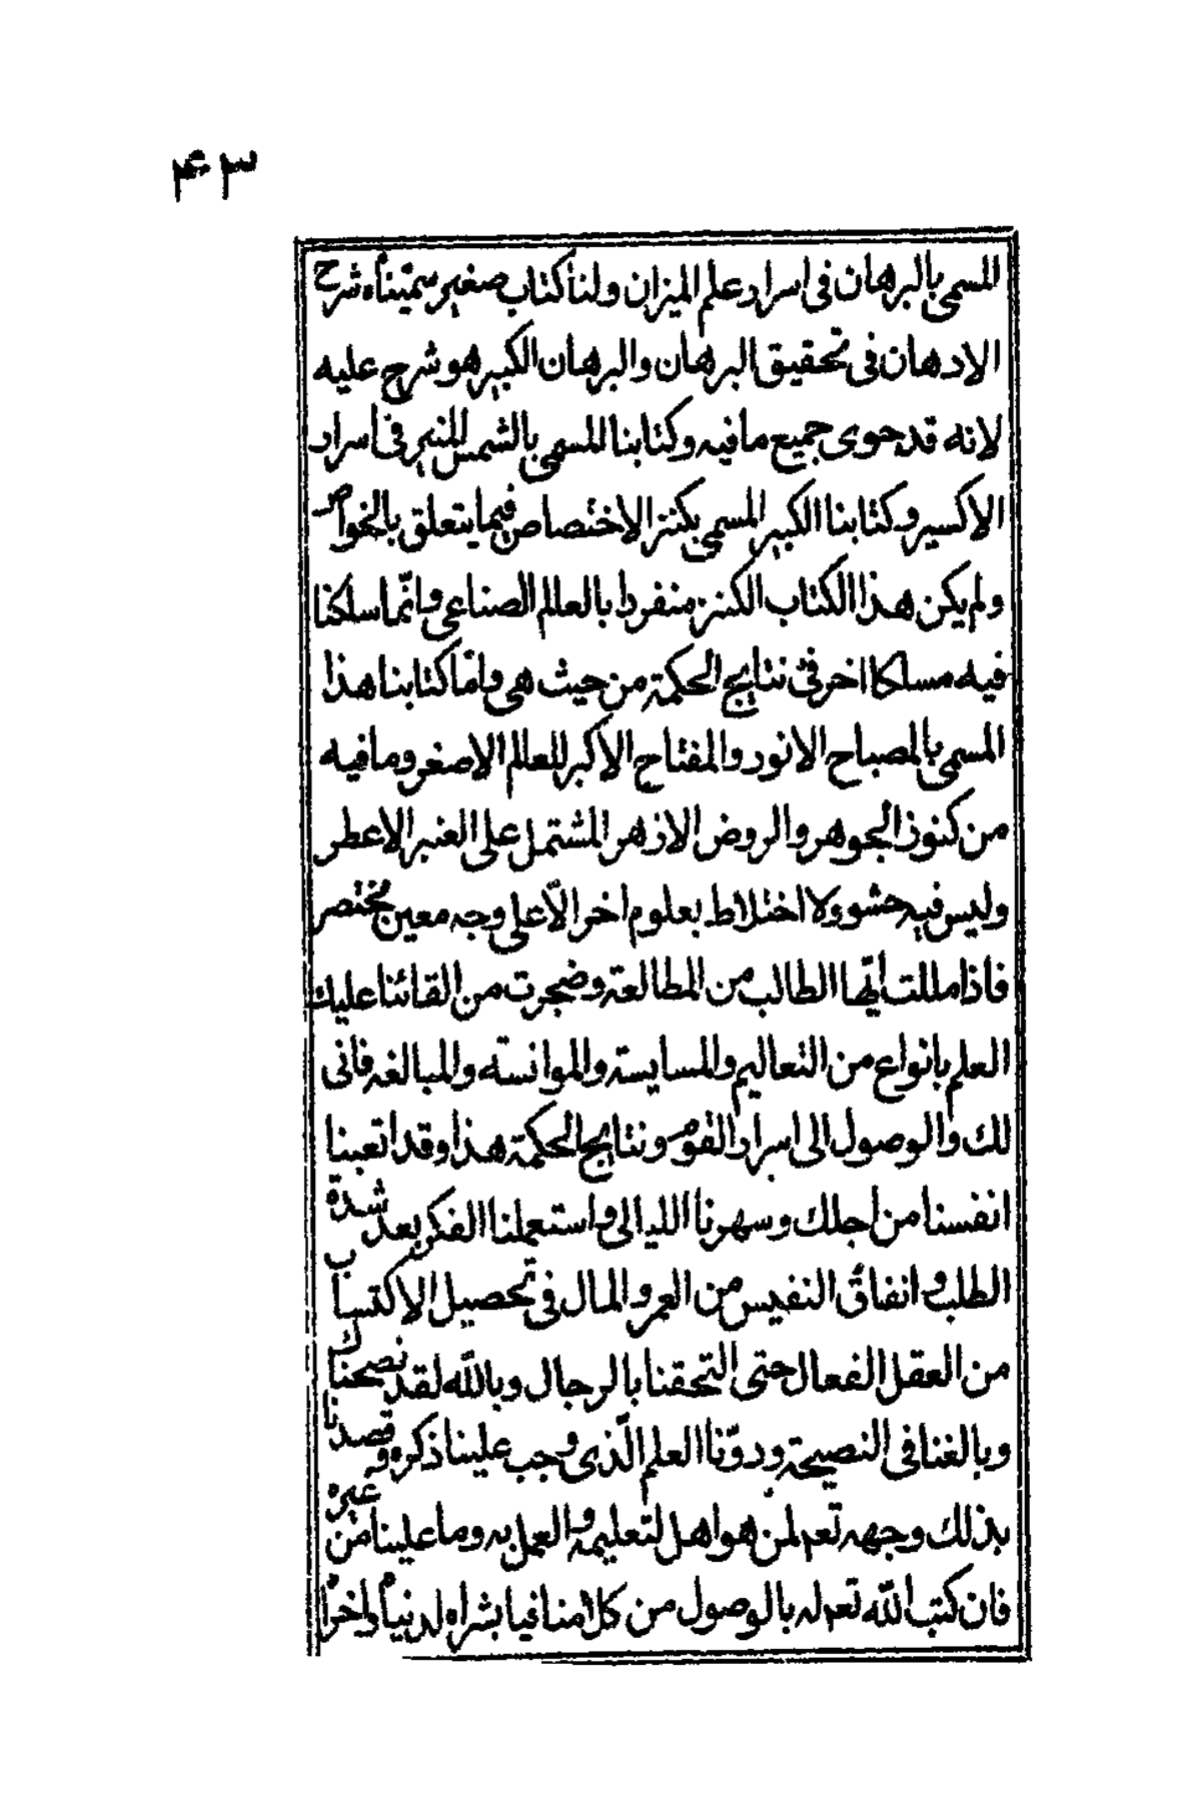 ۴۳
المسمى بالبرهان فى اسرار علم الميزان ولنا كتاب صغير سميّناه شرح
الادهان فى تحقيق البرهان والبرهان الكبير هو شرح عليه
لانه قد حوى جميع ما فيه وكتابنا المسمى بالشمس المنير فى اسرار
الاكسير وكتابنا الكبير المسمى بكنز الاختصاص فيما يتعلق بالخواص
ولم يكن هذا الكتاب الكنز منفردا بالعالم الصناعى وانّما سلكنا
فيه مسلكا اخر فى نتايج الحكمة من حيث هى وامّا كتابنا هذا
المسمى بالمصباح الانور والمفتاح الاكبر للعالم الاصغر وما فيه
من كنوز الجوهر والروض الازهر المشتمل على العنبر الاعطر
وليس فيه حشو ولا اختلاط بعلوم اخر الّا على وجه معين مختصر
فاذا مللت ايّها الطالب من المطالعة وضجرت من القائنا عليك
العلم بانواع من التعاليم والمسايسة والموانسته والمبالغه فانى
لك والوصول الى اسرار القوم ونتايج الحكمة هذا وقد اتعبنا
انفسنا من اجلك وسهرنا الليالى واستعملنا الفكر بعد شدة
الطلب وانفاق النفيس من العمر والمال فى تحصيل الاكتساب
من العقل الفعال حتى التحقنا بالرجال وبالله لقد نصحناك
وبالغنا فى النصيحة ودوّنا العلم الّذى وجب علينا ذكره وقصدنا
بذلك وجهه تعم لمن هو اهل لتعليمه والعمل به وما علينا من غيره
فان كتب اللّه تعم له بالوصول من كلامنا فيا بشراه لدنياه واخراه